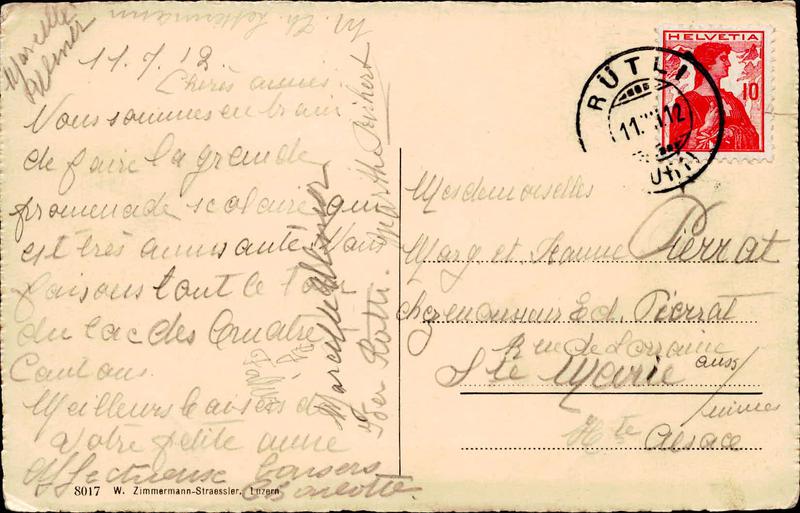 Marcelle
11.7.12.
Chères amies.
Nous sommes en train
de faire la grande
promenade scolaire qui
est très amusante. Nous
faisons tout le tour
du lac des Quatre
Cantons.
Meilleurs baisers de
votre petite amie
Affectueux baisers
Charlotte.
Marthe Reichert
Marcelle
HELVETIA
10
RÜTLI
11. 12
(URI)
Mesdemoiselles
Marg et Jeanne Pierrat
chez monsieur Ed. Pierrat
Rue de Lorraine
Ste Marie aux
mines
Hte Alsace
8017 W. Zimmermann-Straessler, Luzern